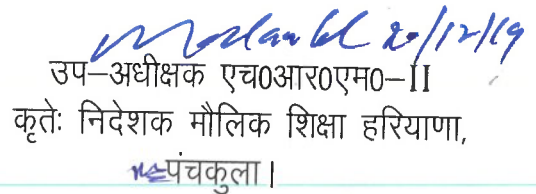 20/12/19
उप-अधीक्षक एच0आर0एम0-II
कृतेः निदेशक मौलिक शिक्षा हरियाणा,
पंचकुला।